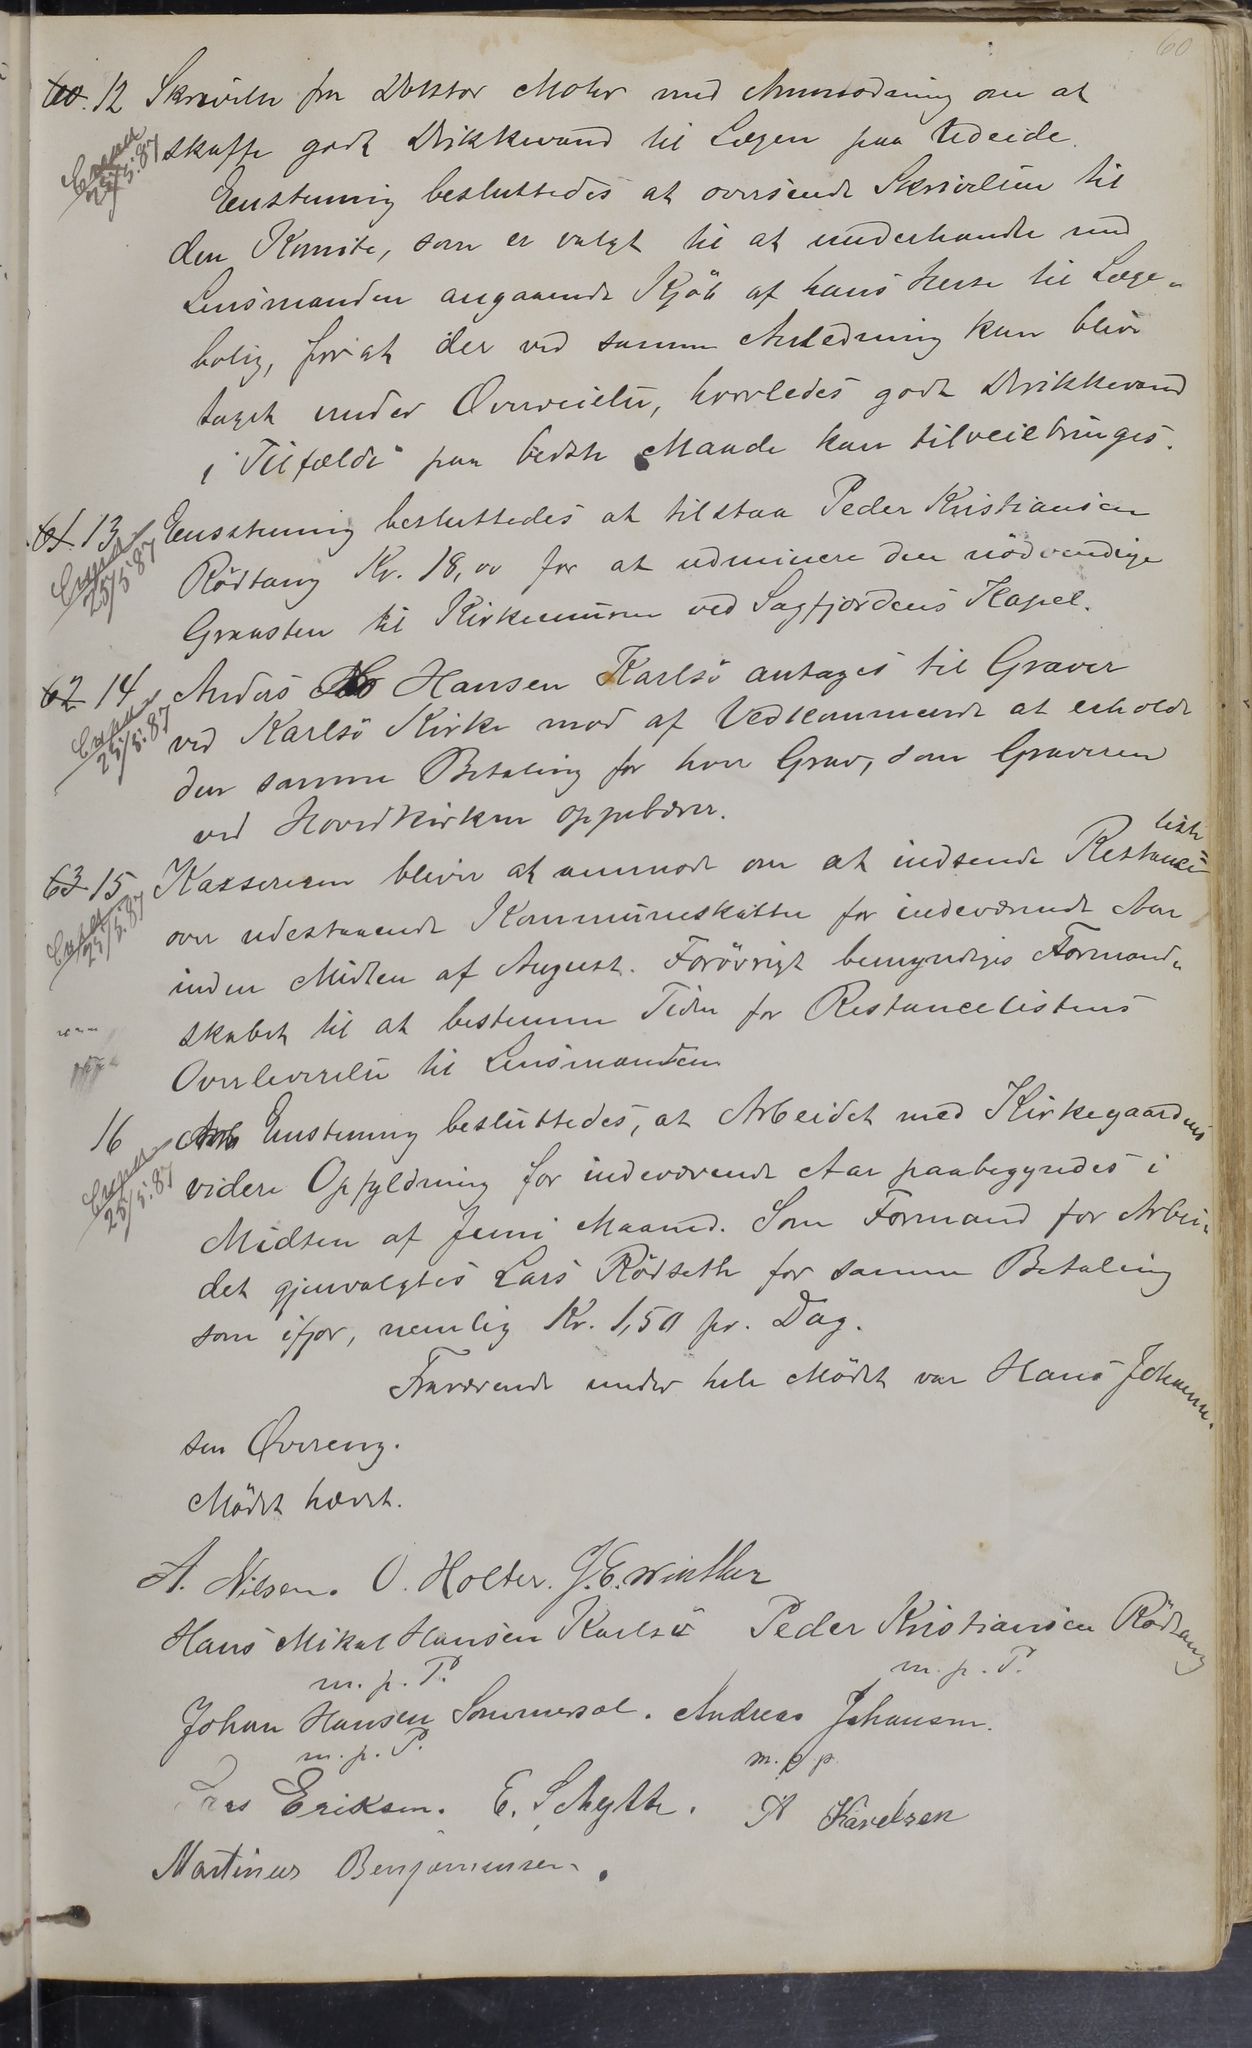 60
60. 12 Skrivelse fra Doktor Mohr med Anmodning om at
skaffe godt Drikkevand til Lægen paa Vedeide.
Exped 25/5.87
Eenstemmig besluttedes at oversende Skrivelsen til
den Komite, som er valgt til at underhandle med
Lensmanden angaaende Kjøb af hans Huse til Læge-
bolig, forat der ved samme Anledning kan blive
taget under Overveielse, hvorledes godt Drikkevand
i Tilfælde paa bedste Maade kan tilveiebringes.
61 13 Eenstemmig besluttedes at tilstaa Peder Kristiansen
Exped 25/5 87
Rödtang Kr. 18,00 for at udminere den nödvendige
Graasten til Kirkemuren ved Sagfjordens Kapel.
62 14 Anders Hansen Karlsö antages til Graver
Exped 25/5.87
ved Karlsö Kirke mod af Vedkommende at erholde
den samme Betaling for hver Grav, som Graveren
ved Hovedkirken oppebærer.
63 15 Kassereren bliver at anmode om at indsende Restance-
liste
Exped 25/5.87
over udestaaende Kommuneskatter for indeværende Aar
inden Midten af August. Forövrigt bemyndiges Formand-
skabet til at bestemme Tiden for Restancelistens
Overleverelse til Lensmanden
16 Arb Eenstemmig besluttedes, at Arbeidet med Kirkegaardens
Exped 25/5.87
videre Opfyldning for indeværende Aar paabegyndes i
Midten af Juni Maaned. Som Formand for Arbei-
det gjenvalgtes Lars Rödseth for samme Betaling
som ifjor, nemlig Kr. 1,50 pr. Dag.
Fraværende under hele Mödet var Hans Johanne-
sen Øvereng.
Mödet hævet.
A. Nilsen. O. Holter. J. E. Winther
Hans Mikal Hansen Karlsö Peder Kristiansen Rödtang
m. p. P. m. p. P.
Johan Hansen Sommersæl. Andreas Johansen.
m. p. P. m. p. p.
Lars Eriksen. E. Schytte. A Karelsen
Martinus Benjaminsen.